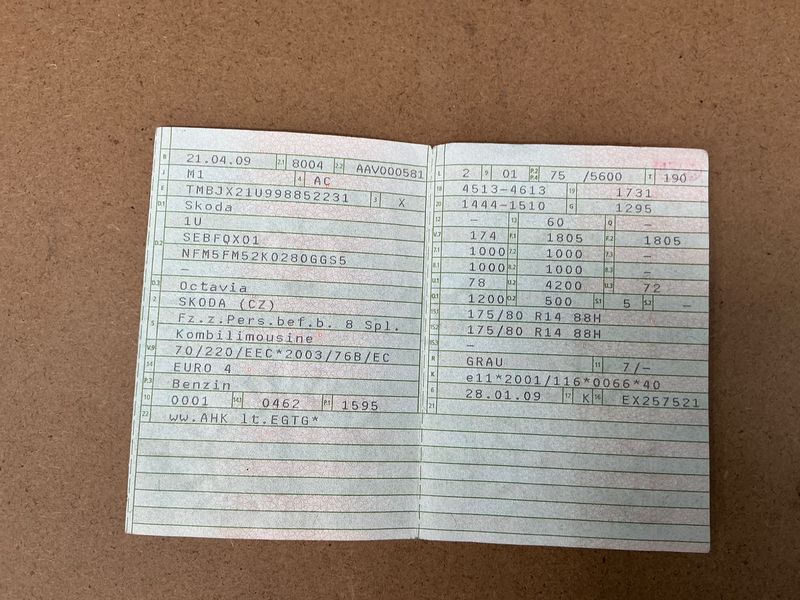 B 21.04.09 2.1 8004 2.2 AAV000581
J M1 4 AC
E TMBJX21U998852231 3 X
D.1 Skoda
1U
D.2 SEBFQX01
NFM5FM52K0280GGS5
–
D.3 Octavia
2 SKODA (CZ)
5 Fz.z.Pers.bef.b. 8 Spl.
Kombilimousine
V.9 70/220/EEC*2003/76B/EC
14 EURO 4
P.3 Benzin
10 0001 14.1 0462 P.1 1595
22 ww.AHK lt.EGTG*
L 2 9 01 P.2 P.4 75 /5600 T 190
18 4513-4613 19 1731
20 1444-1510 G 1295
12 – 13 60 Q –
V.7 174 F.1 1805 F.2 1805
7.1 1000 7.2 1000 7.3 –
8.1 1000 8.2 1000 8.3 –
U.1 78 U.2 4200 U.3 72
O.1 1200 O.2 500 S.1 5 S.2 –
15.1 175/80 R14 88H
15.2 175/80 R14 88H
15.3 –
R GRAU 11 7/–
K e11*2001/116*0066*40
6 28.01.09 17 K 16 EX257521
21